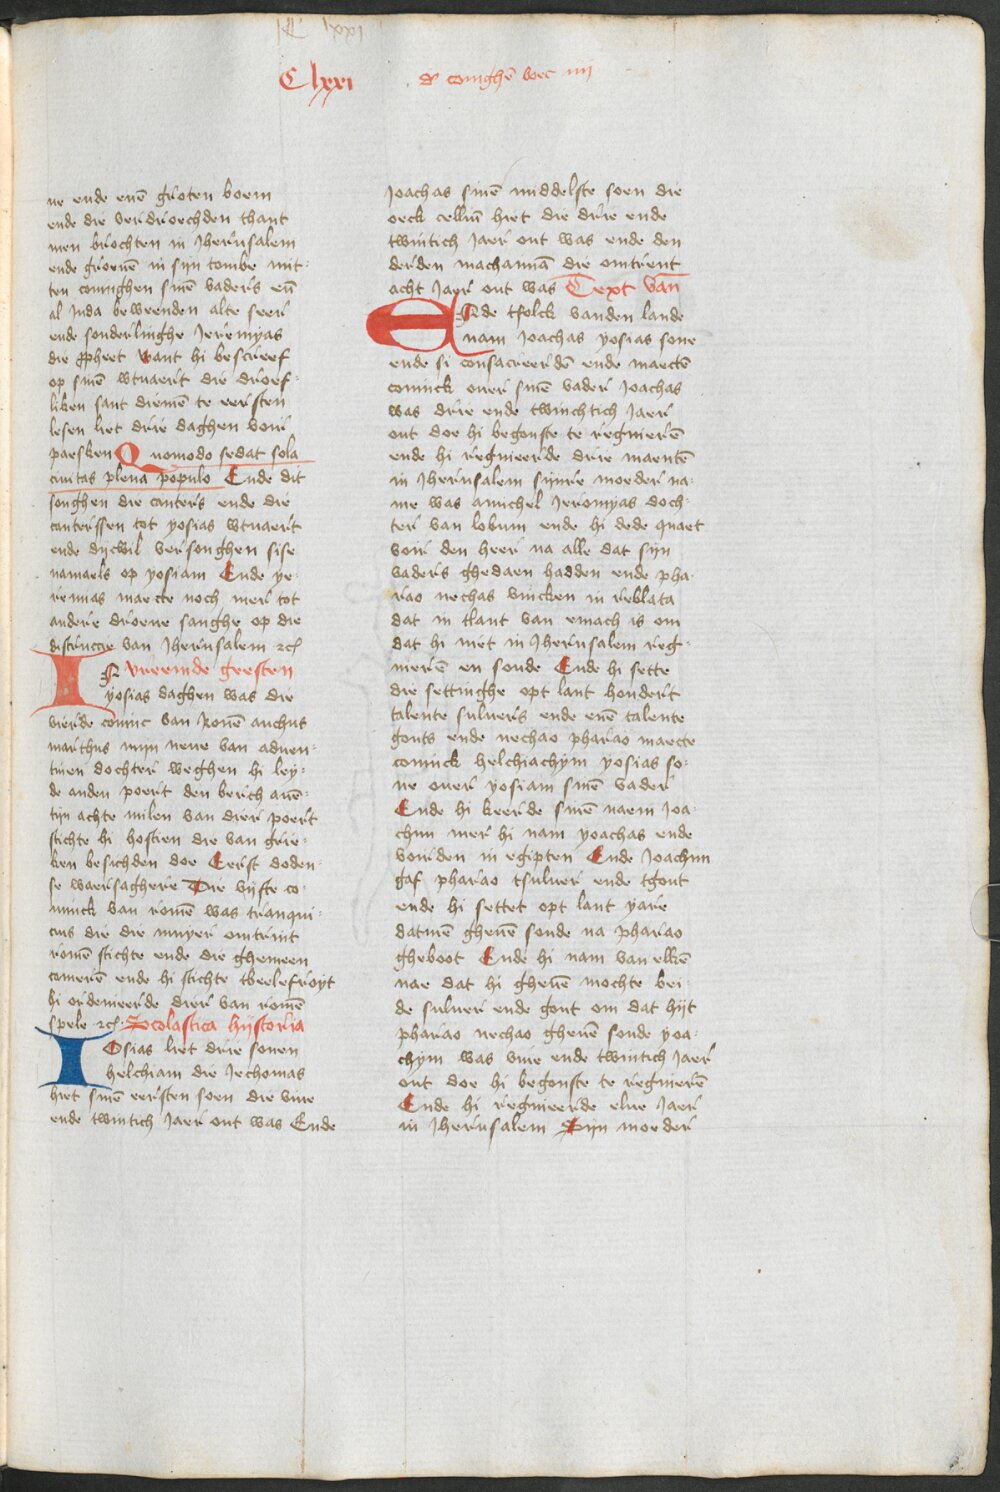 Clxxi
d coninghē boec iiij
ne ende enē groten boem
ende die verdroechden thant
men brochten in Jherusalem
ende groevē in sijn tombe mit
ten coninghen sinē vaders eñ
al Juda beweenden alte seer
ende sonderlinghe Jeremyas
die ꝓpheet want hi bescreef
op sinē wtvaert die droef
liken sanc diemē te eersten
lesen liet drie daghen voir
paesken Quomodo sedat sola
civitas plena populo Ende dit
songhen die canters ende die
canterssen tot yosias wtvaert
ende dicwil versonghen sise
namaels op yosiam Ende ye
remias maecte noch meer tot
andere droeve sanghe op die
distructie van Jherusalem ꝛc
vreemde geesten
IN
yosias daghen was die
vierde coninc van Romē anchus
marthus mijn neve van adven
tinen dochter weghen hi ley
de anden poert den berch avē
tijn achte milen van dier poert
stichte hi hostien die van grie
ken besichden doe Eerst doden
se waersaghere Die vijfte co
ninck van romē was tranqui
cus die die muyer omtrint
romē stichte ende die ghemeen
camerē ende hi stichte tbeelefroyt
hi ordeneerde dier van romē
spele ꝛc Scolastica hijstoria
IOsias liet drie sonen
helchiam die Jechomas
hiet sinē eersten soen die vive
ende twintich Jaer out was Ende
Joachas sinē middelste soen die
oeck celliū hiet die drie ende
twintich Jaer out was ende den
derden machannā die omtrent
acht Jaer out was Text van
ENde tfolck vanden lande
nam Joachas yosias sone
ende si consacreerdē ende maectē
coninck over sinē vader Joachas
was drie ende twinchtich Jaer
out doe hi begonste te regnierē
ende hi regnieerde drie maentē
in Jherusalem sijnre moeder na
me was amichel Jeromyas doch
ter van lobum ende hi dede quaet
voir den heer na alle dat sijn
vaders ghedaen hadden ende pha
rao nechas vincken in reblata
dat in tlant van emach is om
dat hi niet in Jherusalem reg
nierē en soude Ende hi sette
die settinghe opt lant hondert
talente sulvers ende enē talente
gouts ende nechao pharao maecte
coninck helchiachym yosias so
ne over yosiam sinē vader
Ende hi keerde sinē naem Joa
chim mer hi nam yoachas ende
voirden in egipten Ende Joachim
gaf pharao tsulver ende tgout
ende hi settet opt lant yare
datmē ghevē soude na pharao
gheboot Ende hi nam van elkē
nae dat hi ghevē mochte bei
de sulver ende gout om dat hijt
pharao nechao ghevē soude yoa
chym was vive ende twintich Jaer
out doe hi begonste te regnierē
Ende hi regnieerde elve Jaer
in Jherusalem Sijn moeder